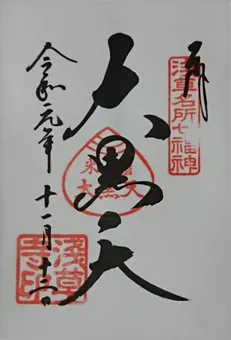 奉拝
浅草名所七福神
大黒天
令和元年十一月十三日
浅草寺印